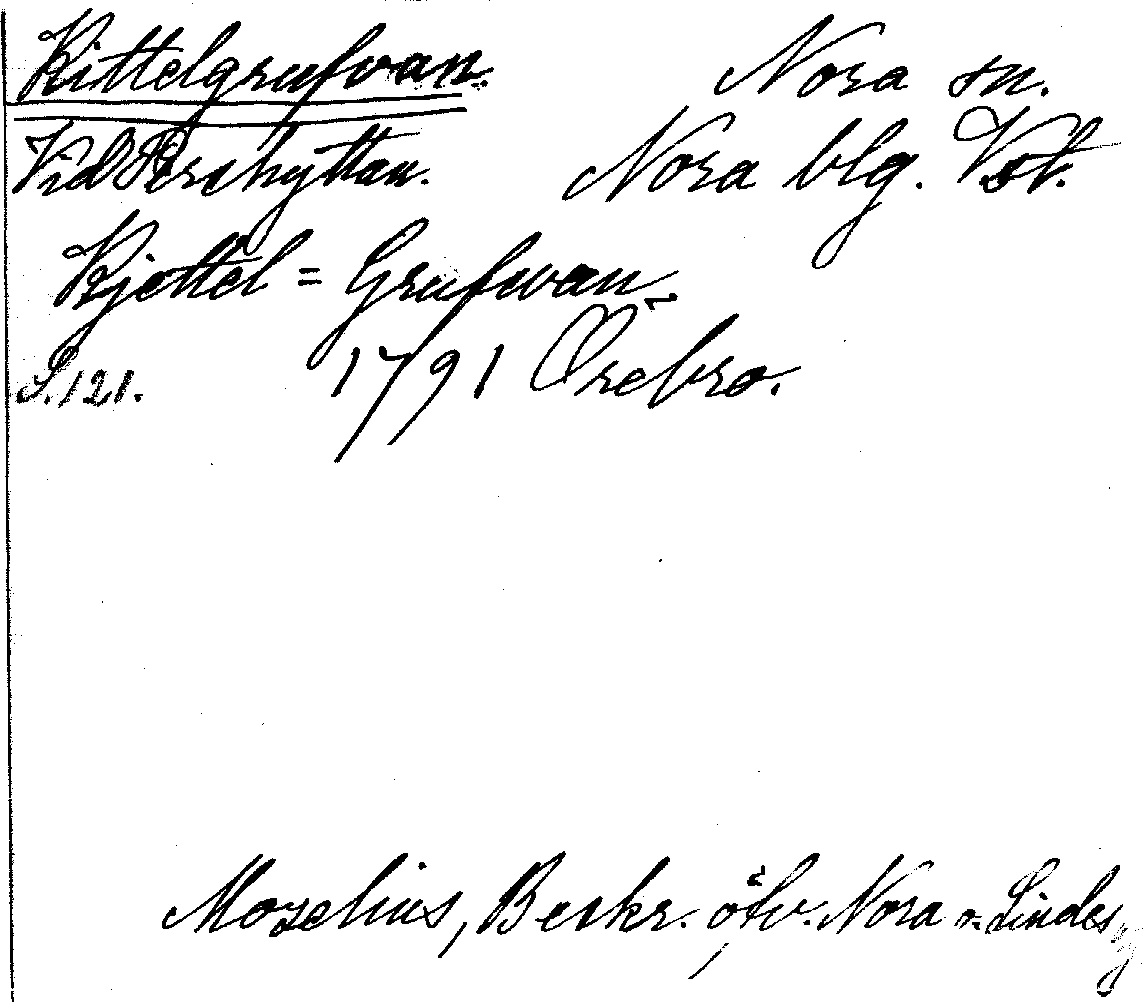 Kittelgrufvan. Nora sn.
Vid Pershyttan. Nora blg. Vst.
Kjettel = Grufwan.
S. 121. 1791 Örebro.
Moselius, Beskr. öfv. Nora o. Lindes